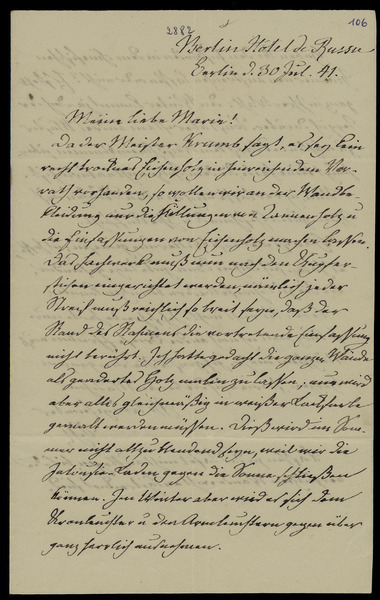 2882
106
Berlin Hotel de Russie
Berlin d. 30 Jul. 41.
Meine liebe Marie!
Da der Meister Krumb sagt, es sey kein
recht trocknes Eichenholz in hinreichendem Vor-
rath vorhanden, so wollen wir an der Wandbe-
kleidung nur die Füllungen von Tannenholz u
die Einfassungen von Eichenholz machen lassen.
Das Fachwerk muß nun nach den Kupfer-
stichen eingerichtet werden, nämlich jeder
Streif muß reichlich so breit seyn, daß der
Rand des Rahmens die vortretende Einfassung
nicht berührt. Ich hatte gedacht die ganzen Wände
als geadertes Holz malen zu lassen; nun wird
aber alles gleichmäßig in weißer Lackfarbe
gemalt werden müssen. Dieß wird im Som-
mer nicht allzu blendend seyn, weil wir die
Jalousie-Laden gegen die Sonne schließen
können. Im Winter aber wird es sich dem
Kronleuchter u den Armleuchtern gegen über
ganz herrlich ausnehmen.